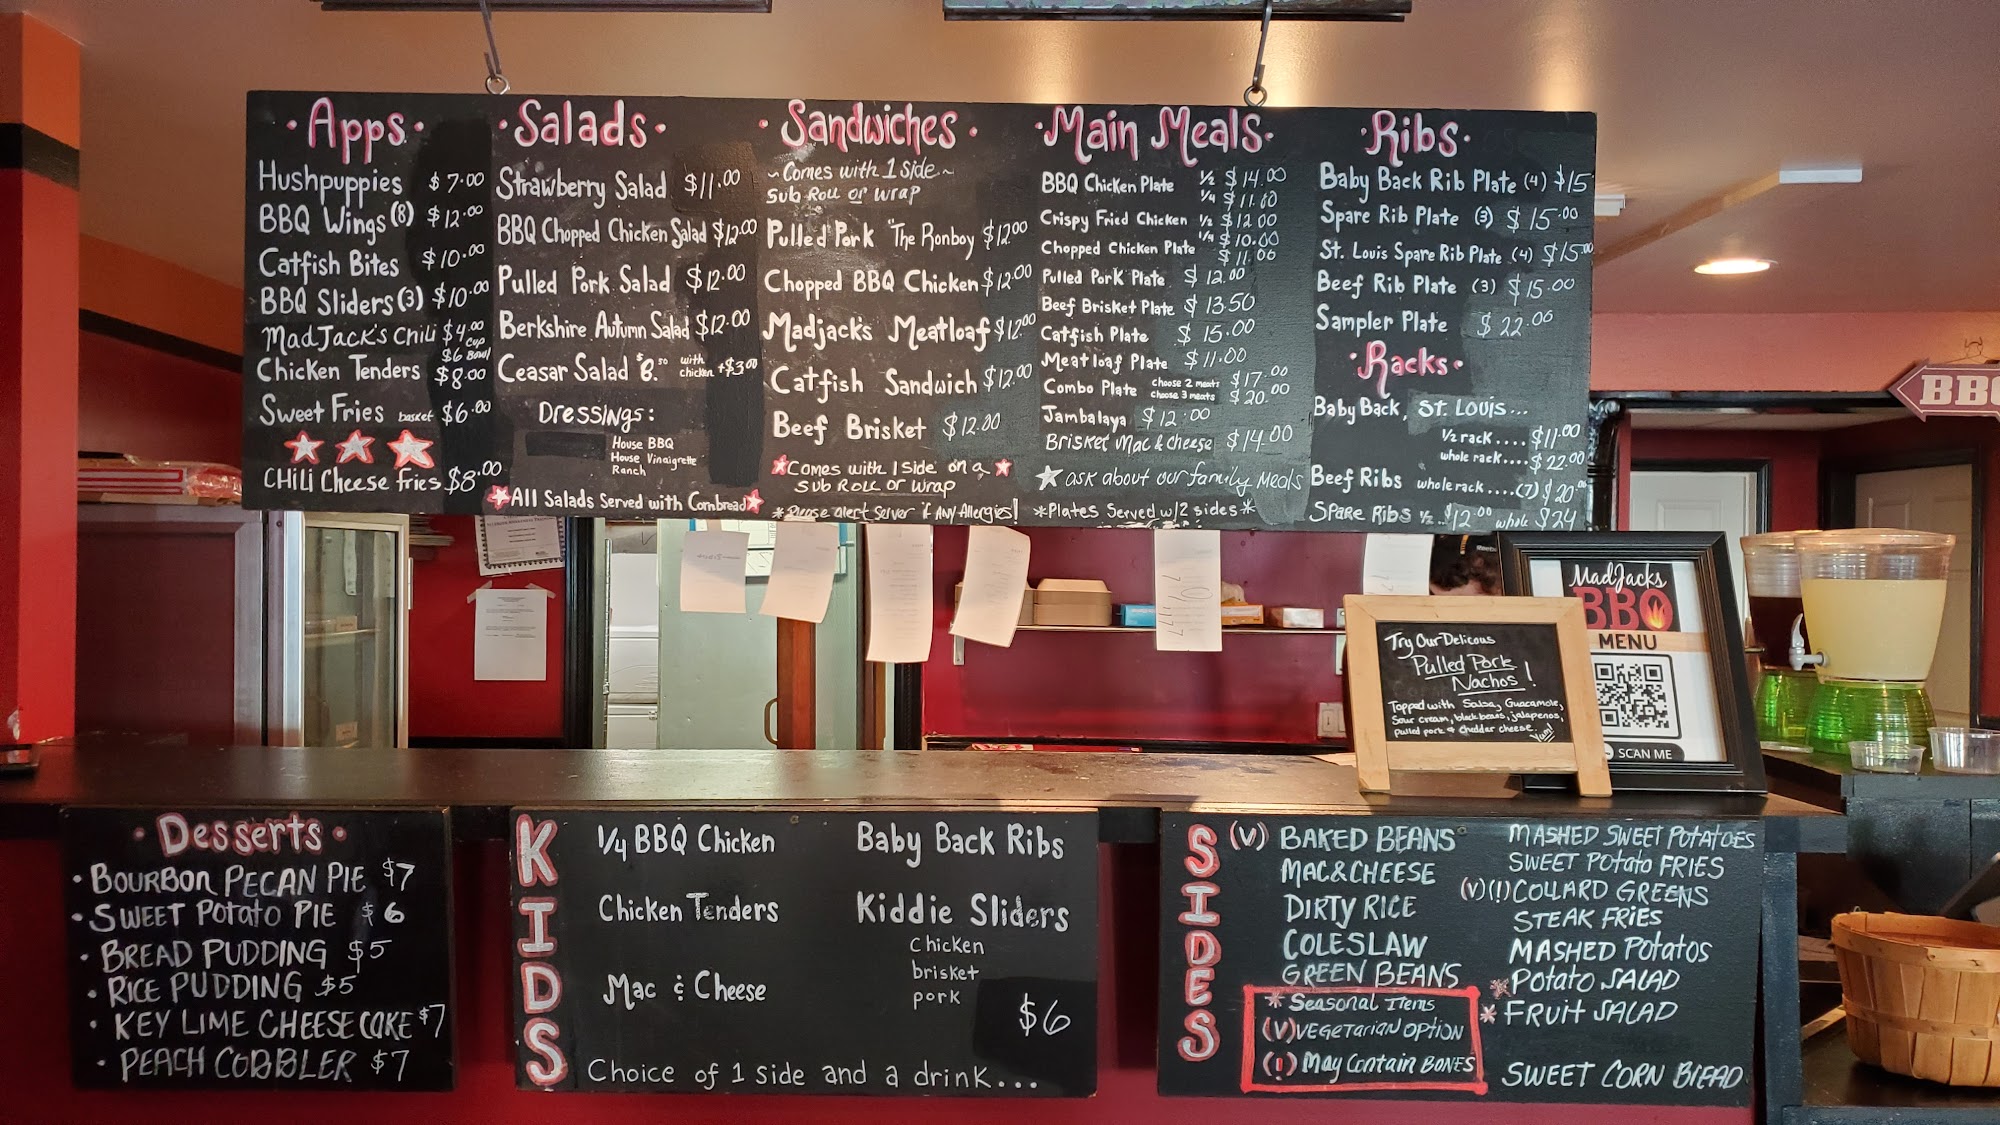 Apps
Hushpuppies $7.00
BBQ Wings (8) $12.00
Catfish Bites $10.00
BBQ Sliders (3) $10.00
MadJack's Chili $4.00 cup
$6 Bowl
Chicken Tenders $8.00
Sweet Fries basket $6.00
CHILI Cheese fries $8.00
Salads
Strawberry Salad $11.00
BBQ Chopped Chicken Salad $12.00
Pulled Pork Salad $12.00
Berkshire Autumn Salad $12.00
Ceasar Salad $8.50 with chicken +$3.00
Dressings:
House BBQ
House Vinaigrette
Ranch
All Salads Served with Cornbread
Sandwiches
~Comes with 1 side~
Sub Roll or wrap
Pulled Pork "The Ronboy $12.00
Chopped BBQ Chicken $12.00
Madjack's Meatloaf $12.00
Catfish Sandwich $12.00
Beef Brisket $12.00
Comes with 1 side on a
Sub Roll or wrap
*Please alert Server if Any Allergies!
Main Meals
BBQ Chicken Plate 1/2 $14.00
1/4 $11.00
Crispy Fried Chicken 1/2 $12.00
1/4 $10.00
Chopped Chicken Plate $11.00
Pulled Pork Plate $12.00
Beef Brisket Plate $13.50
Catfish Plate $15.00
Meatloaf Plate $11.00
Combo Plate choose 2 meats $17.00
choose 3 meats $20.00
Jambalaya $12.00
Brisket Mac & cheese $14.00
ask about our family Meals
*Plates Served w/2 sides*
Ribs
Baby Back Rib Plate (4) $15
Spare Rib Plate (3) $15.00
St. Louis Spare Rib Plate (4) $15.00
Beef Rib Plate (3) $15.00
Sampler Plate $22.00
Racks
Baby Back, St. Louis...
1/2 rack.... $11.00
whole rack.... $22.00
Beef Ribs whole rack....(7) $20.00
Spare Ribs 1/2 .. $12.00 whole $24
BBQ
MadJacks
BBQ
MENU
SCAN ME
Try Our Delicous
Pulled Pork
Nachos!
Topped with Salsa, Guacamole,
Sour cream, black beans, jalapenos,
pulled pork & cheddar cheese. Yum!
Desserts
• BOURBON PECAN PIE $7
• SWEET POtatO PIE $6
• BREAD PUDDING $5
• RICE PUDDING $5
• KEY LIME CHEESECAKE $7
• PEACH COBBLER $7
KIDS
1/4 BBQ Chicken
Chicken Tenders
Mac & Cheese
Baby Back Ribs
Kiddie Sliders
chicken
brisket
pork
$6
Choice of 1 side and a drink...
SIDES
(V) BAKED BEANS
MAC&CHEESE
DIRTY RICE
COLESLAW
GREEN BEANS
* Seasonal Items
(V) VEGETARIAN OPTION
(!) May Contain BONES
MASHED SWEET POtatOES
SWEET POtatO FRIES
(V)(!) COLLARD GREENS
STEAK FRIES
MASHED POtatOS
* POtatO SALAD
* FRUIT SALAD
SWEET CORN BREAD